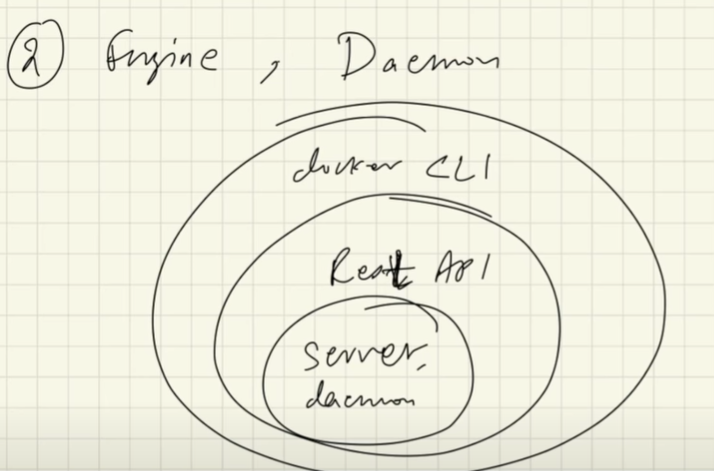 ② Engine, Daemon
docker CLI
Rest API
server,
daemon